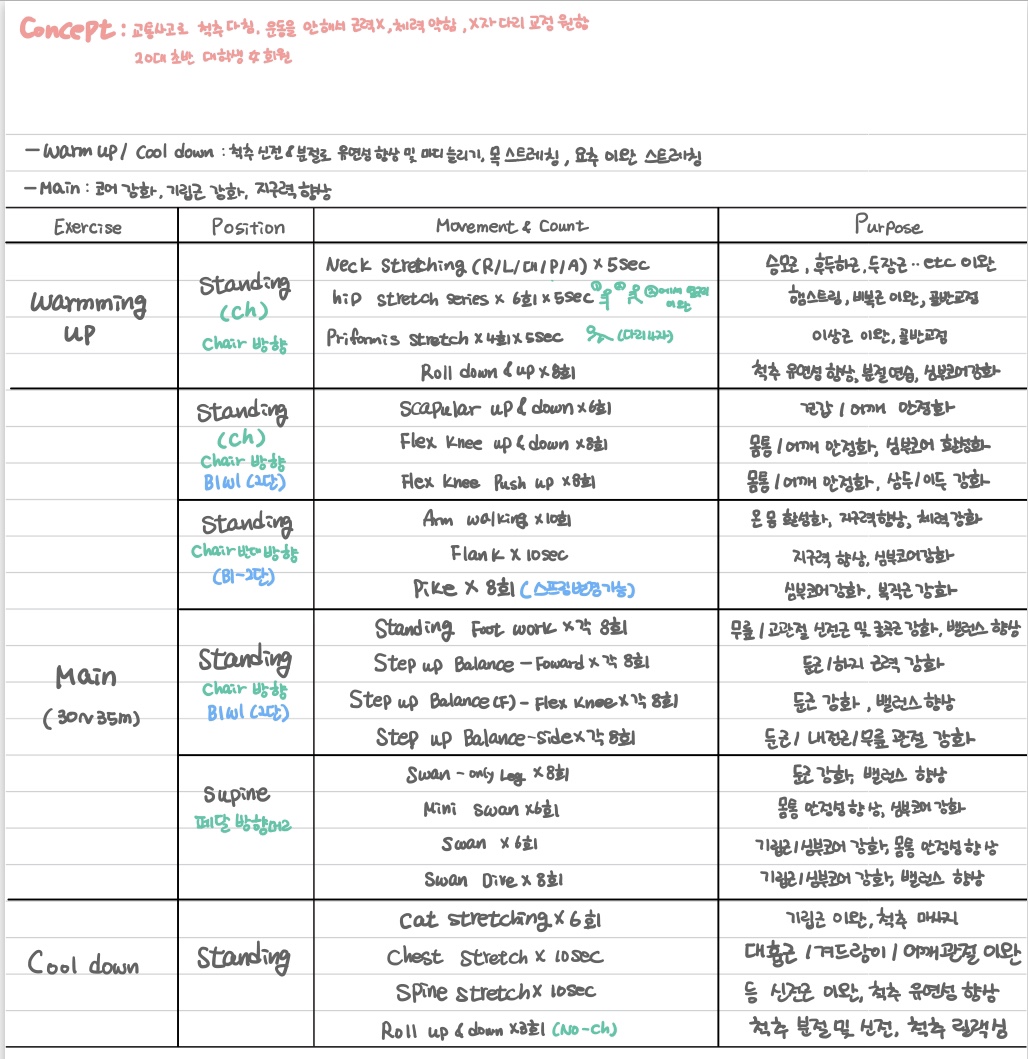 Concept : 교통사고로 척추다침, 운동을 안해서 근력X, 체력 약함, X자 다리 교정 원함
20대 초반 대학생 女 회원
- Warm up / Cool down : 척추 신전 & 분절로 유연성 향상 및 마디 늘리기, 목 스트레칭, 요추 이완 스트레칭
- Main : 코어 강화, 기립근 강화, 지구력 향상
Exercise Position Movement & Count Purpose
Warmming UP
Standing
(Ch)
Chair 방향
Neck Stretching (R/L/대/P/A) X 5sec 승모근, 후두하근, 두장근·· etc 이완
hip stretch series X 6회 X 5sec ① ② ②에서 골반 이완 햄스트링, 비복근 이완, 골반교정
Priformis Stretch X 4회 X 5sec (다리4자) 이상근 이완, 골반교정
Roll down & up X 8회 척추 유연성 향상, 분절연습, 심부코어강화
Main
(30~35m)
Standing
(Ch)
Chair 방향
B1W1 (2단)
Scapular up & down X 6회 견갑 / 어깨 안정화
Flex Knee up & down X 8회 몸통 / 어깨 안정화, 심부코어 활성화
Flex Knee Push up X 8회 몸통 / 어깨 안정화, 삼두/이두 강화
Standing
Chair 반대 방향
(B1-2단)
Arm walking X 10회 온 몸 활성화, 지구력향상, 체력강화
Flank X 10sec 지구력 향상, 심부코어강화
Pike X 8회 (스프링변경가능) 심부코어강화, 복직근 강화
Standing
Chair 방향
B1W1 (2단)
Standing Foot work X 각 8회 무릎 / 고관절 신전근 및 굴곡근 강화, 밸런스 향상
Step up Balance - Foward X 각 8회 둔근/하지 근력 강화
Step up Balance(F) - Flex Knee X 각 8회 둔근 강화, 밸런스 향상
Step up Balance-side X 각 8회 둔근/ 내전근/무릎 관절 강화
Supine
페달 방향머리
Swan - only Leg X 8회 둔근 강화, 밸런스 향상
Mini Swan X 6회 몸통 안정성 향상, 심부코어 강화
Swan X 6회 기립근/심부코어 강화, 몸통 안정성 향상
Swan Dive X 8회 기립근/심부코어 강화, 밸런스 향상
Cool down
Standing
Cat stretching X 6회 기립근 이완, 척추 마사지
Chest Stretch X 10sec 대흉근 / 겨드랑이 / 어깨관절 이완
Spine Stretch X 10sec 등 신전근 이완, 척추 유연성 향상
Roll up & down X3회 (No-Ch) 척추 분절 및 신전, 척추 릴랙싱